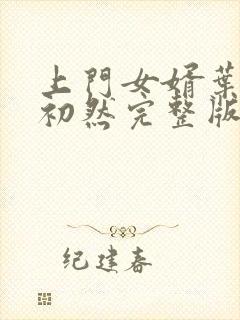 上門女婿葉
初然完整版
纪建春